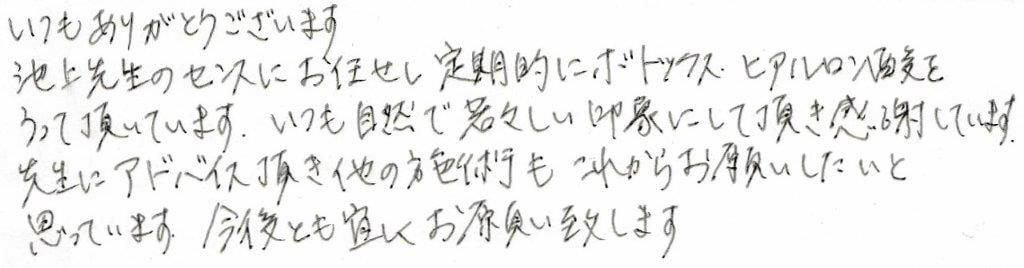 いつもありがとうございます
池上先生のセンスにお任せし定期的にボトックス.ヒアルロン酸を
うって頂いています.いつも自然で若々しい印象にして頂き感謝しています.
先生にアドバイス頂き他の施術もこれからお願いしたいと
思っています.今後とも宜しくお願い致します